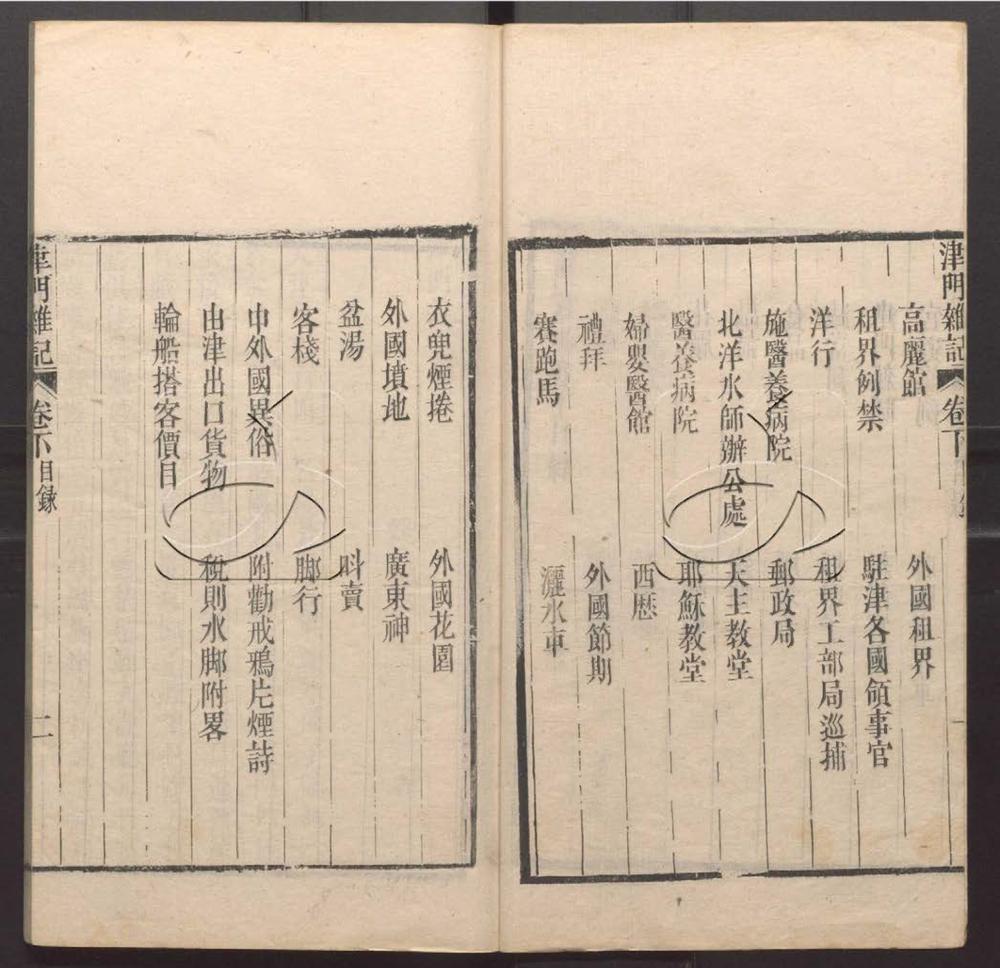 津門雜記 卷下
高麗館 外國租界
租界例禁 駐津各國領事官
洋行 租界工部局巡捕
施醫養病院 郵政局
北洋水師辦公處 天主教堂
醫養病院 耶穌教堂
婦嬰醫館 西歷
禮拜 外國節期
賽跑馬 灑水車
衣兜煙捲 外國花園
外國墳地 廣東神
盆湯 呌賣
客棧 脚行
中外國異俗 附勸戒鴉片煙詩
由津出口貨物 稅則水脚附畧
輪船搭客價目
津門雜記 卷下目錄 二